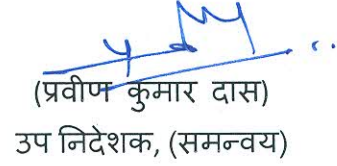 (प्रवीण कुमार दास)
उप निदेशक, (समन्वय)